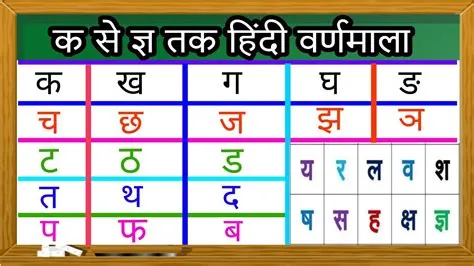 क से ज्ञ तक हिंदी वर्णमाला
क ख ग घ ङ
च छ ज झ ञ
ट ठ ड
त थ द
प फ ब
य र ल व श
ष स ह क्ष ज्ञ